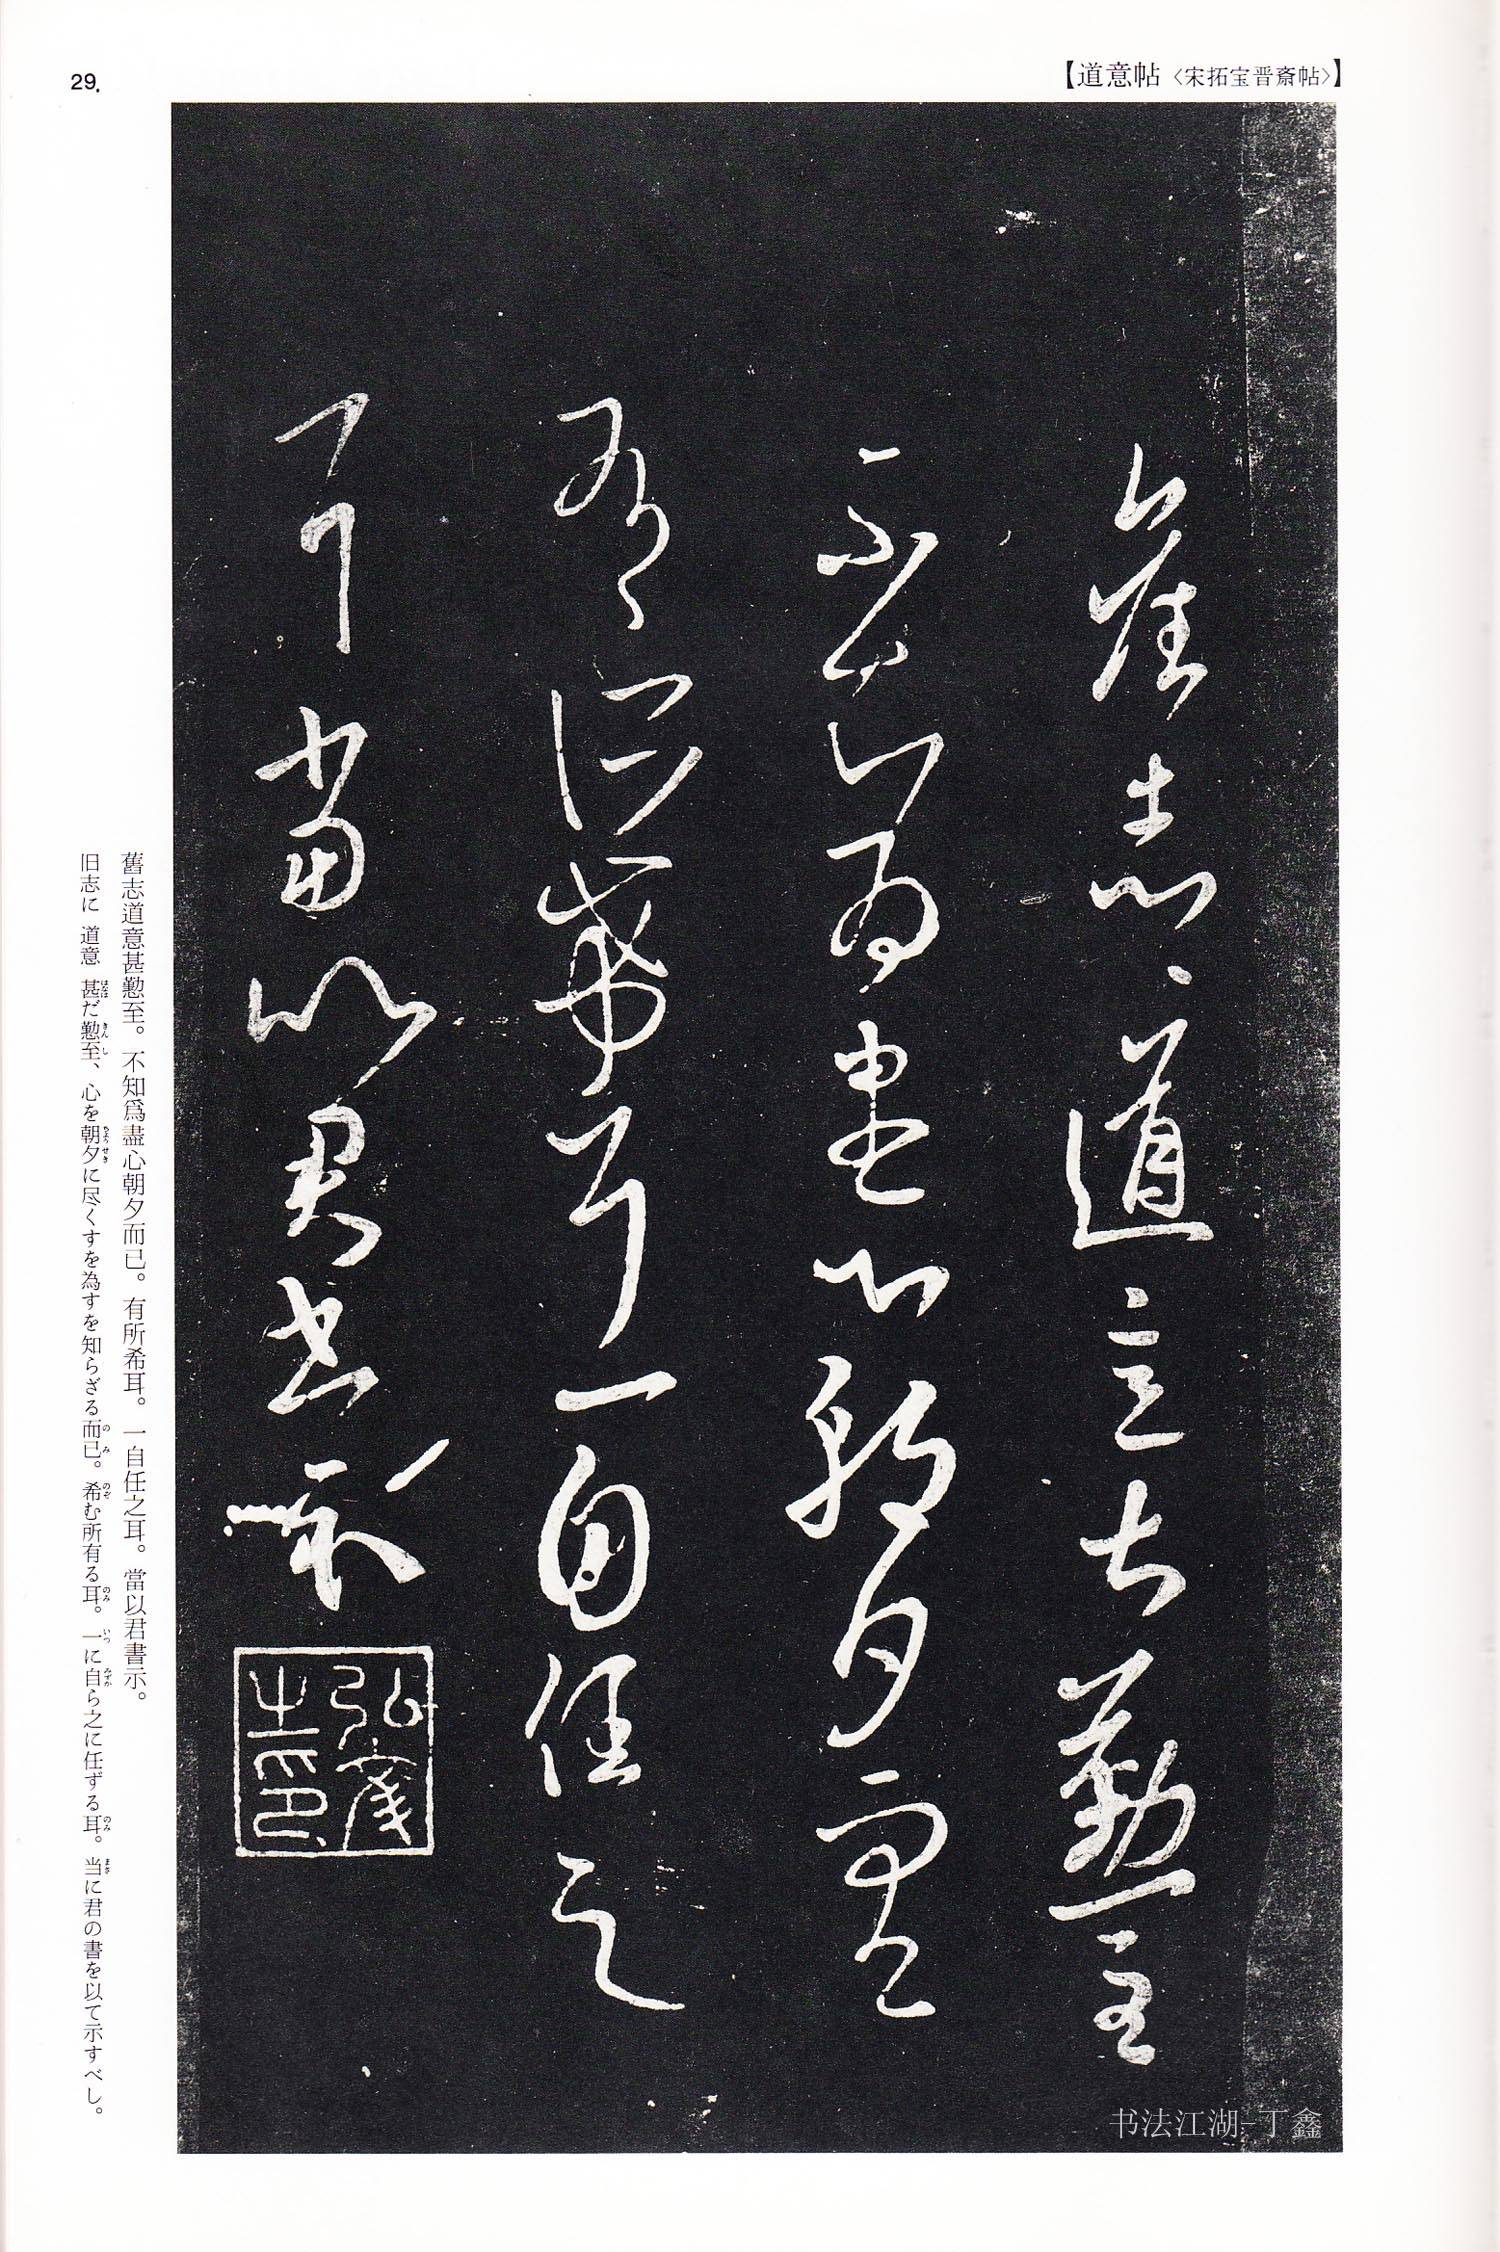 29.
【道意帖〈宋拓宝晋斎帖〉】
舊志道意甚懃至
不知爲盡心朝夕而已
有所希耳一自任之
耳當以君書示
舊志道意甚懃至。不知爲盡心朝夕而已。有所希耳。一自任之耳。當以君書示。
旧志に 道意 甚だ懃至、心を朝夕に尽くすを為すを知らざる而已。希む所有る耳。一に自ら之に任ずる耳。当に君の書を以て示すべし。
书法江湖-丁鑫